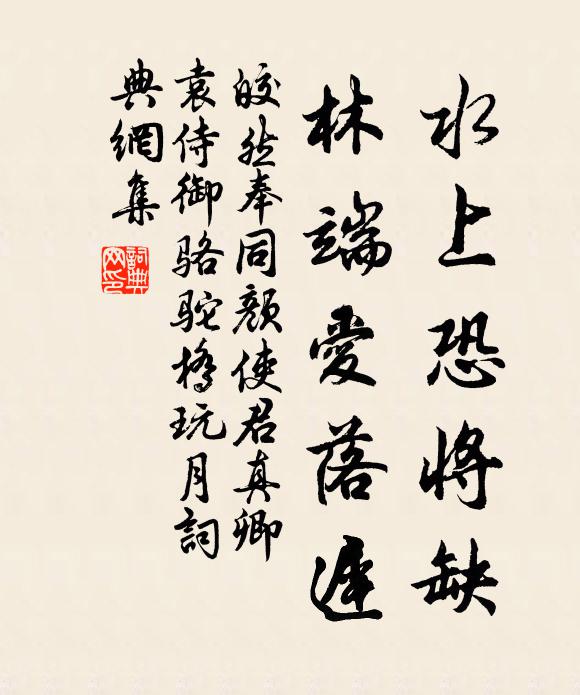 水上恐将缺
林端愛落遲
皎然奉同顏使君真卿
袁侍御駱駝橋玩月詞
典網集
詞典網印